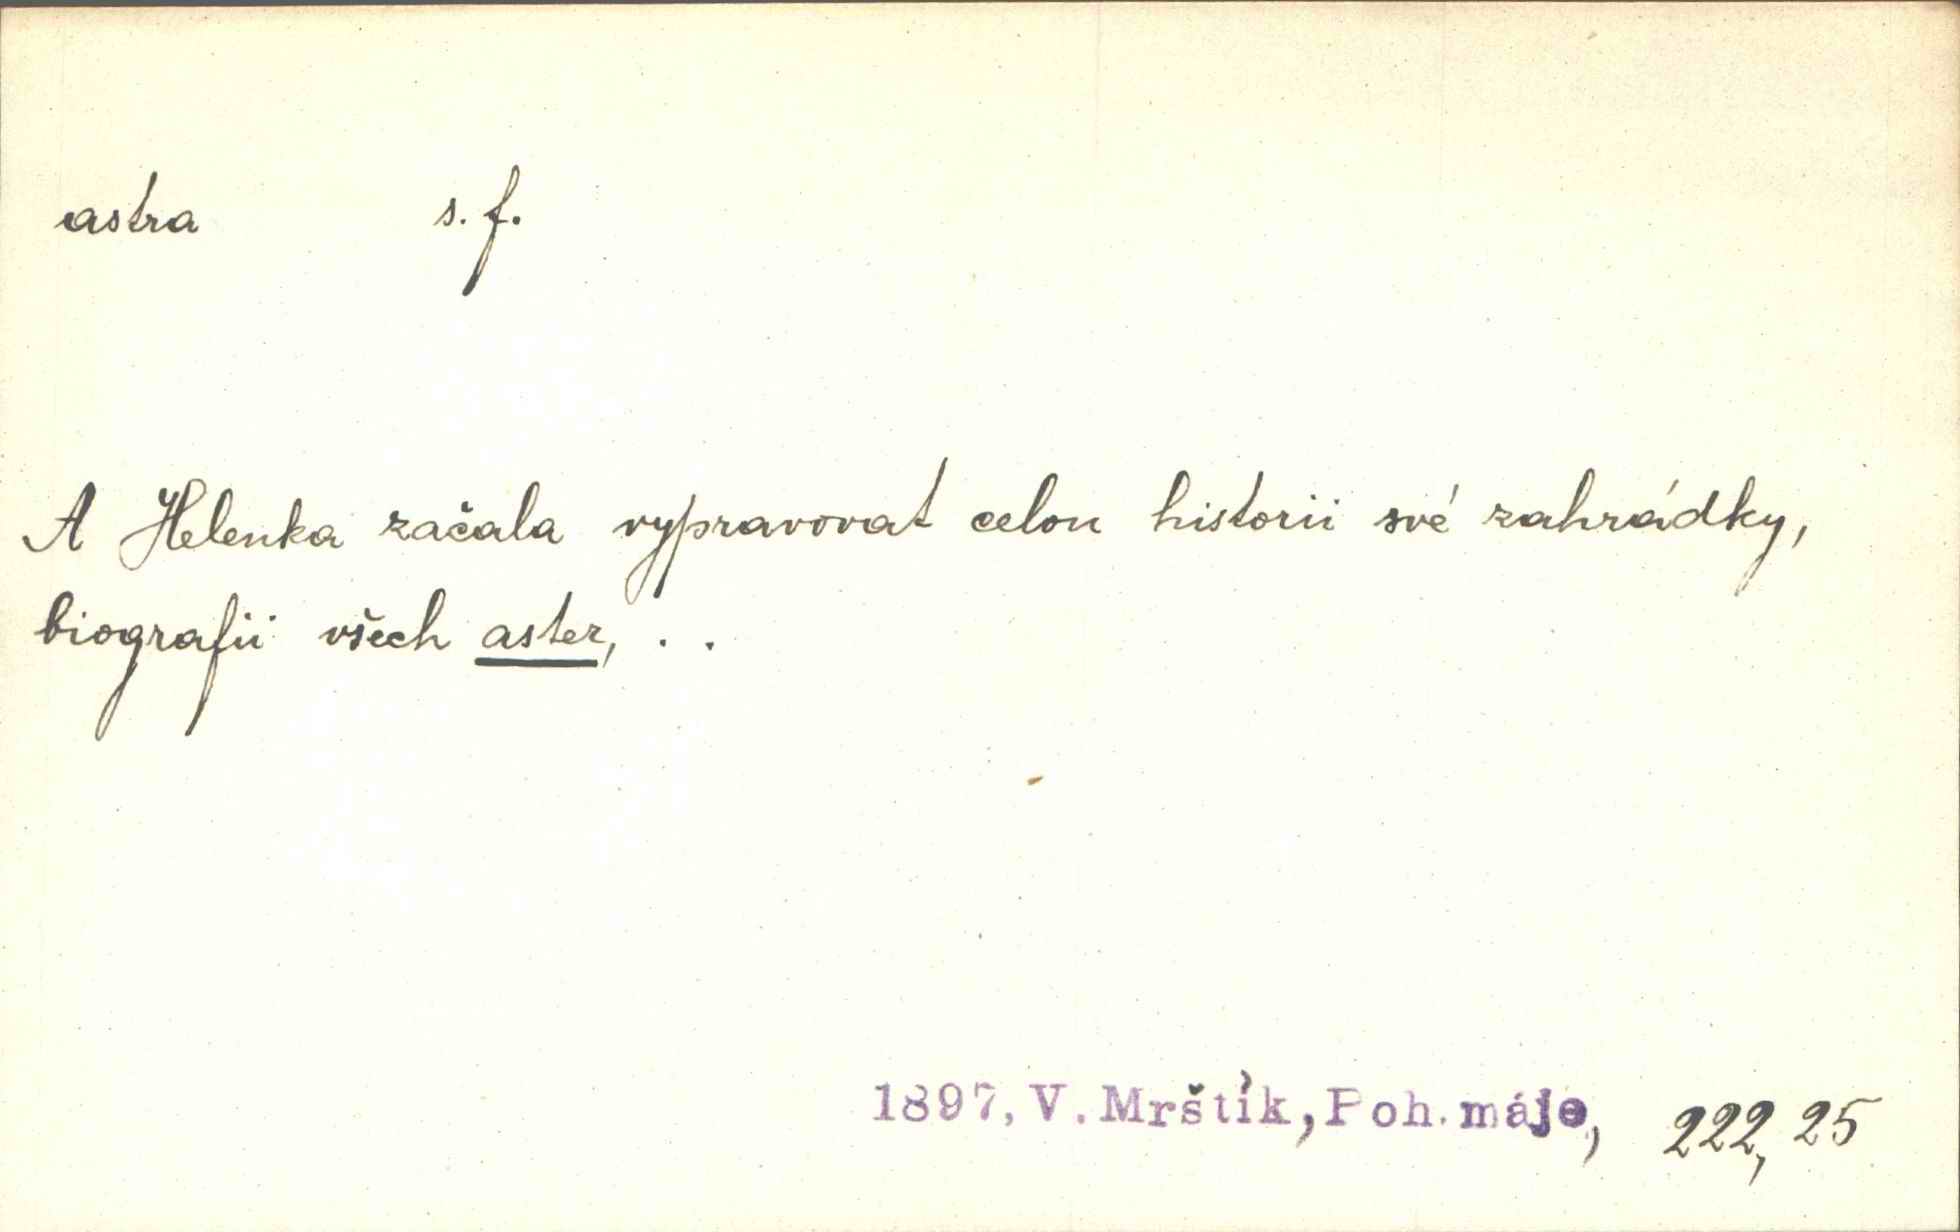 astra s. f.
A Helenka začala vypravovat celou historii své zahrádky,
biografii všech aster, . .
1897, V. Mrštík, Poh. máje, 222, 25